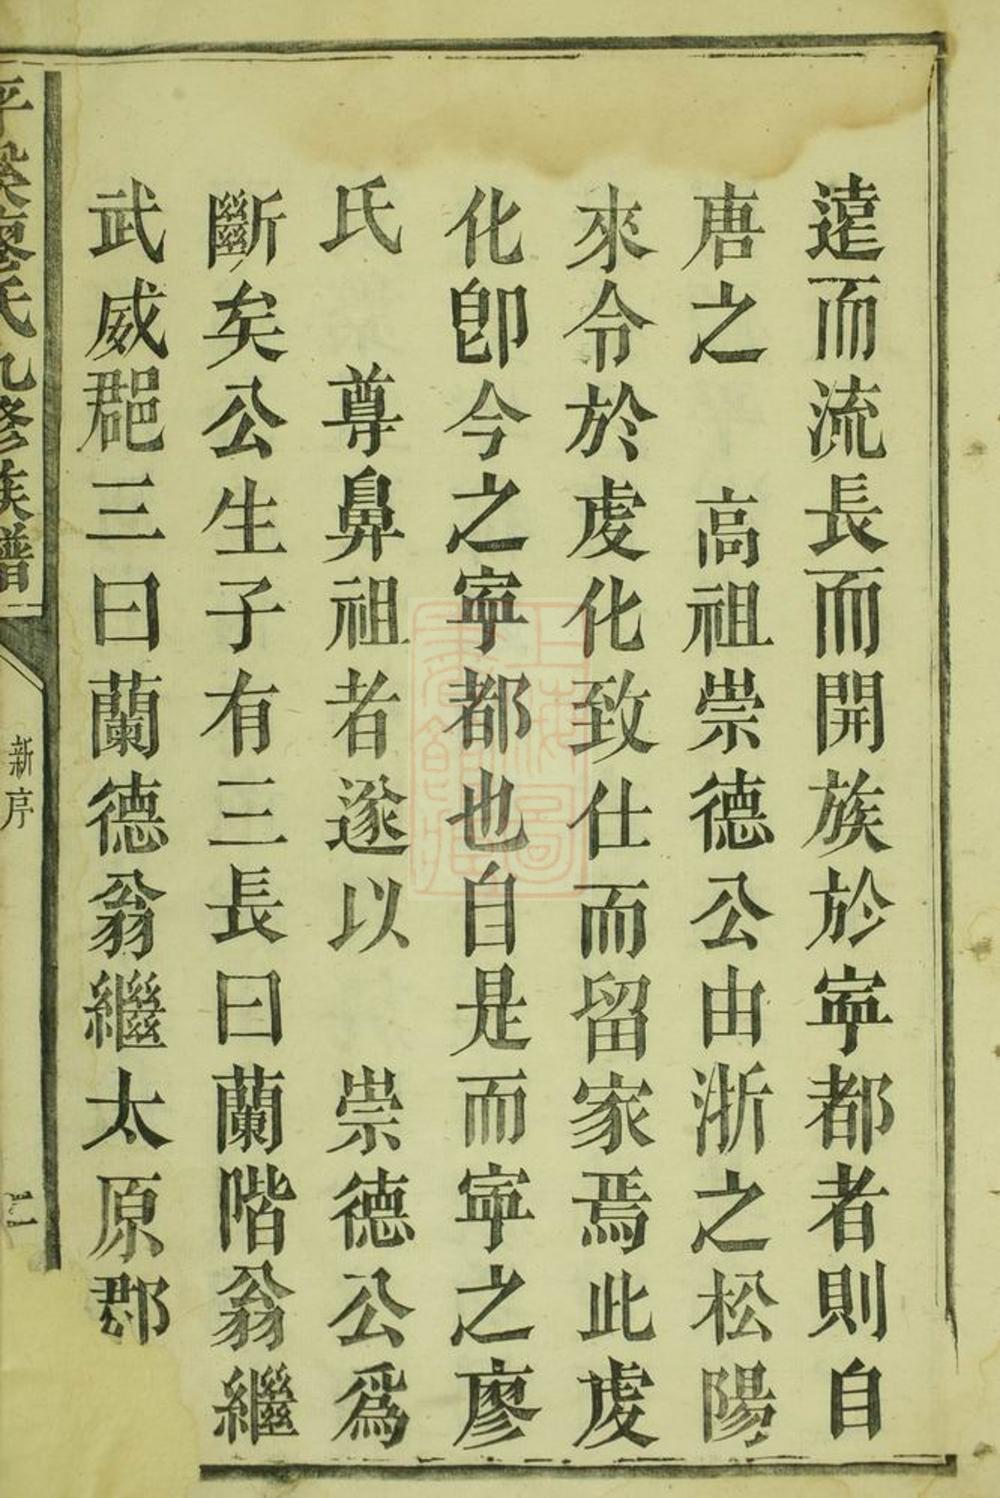 遠而流長而開族於寧都者則自
唐之　高祖崇德公由浙之松陽
來令於虔化致仕而留家焉此虔
化卽今之寧都也自是而寧之廖
氏　尊鼻祖者遂以　崇德公爲
斷矣公生子有三長曰蘭階翁繼
武威郡三曰蘭德翁繼太原郡
廖氏九修族譜
新序
二